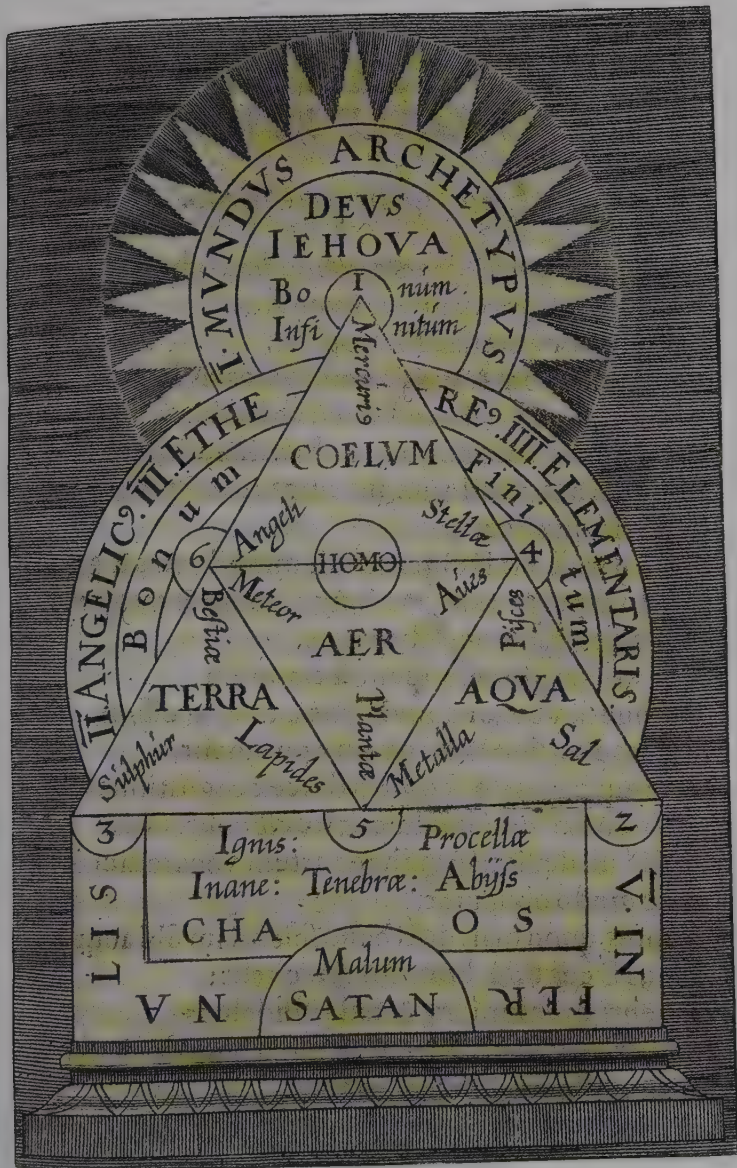 I. MVNDVS ARCHETYPVS
DEVS
IEHOVA
Bo I núm
Infi nitúm
Mercúri9
II ANGELIC9. III ETHE
RE9. IIII ELEMENTARIS
Bonum
Fini tum
COELVM
Angeli
Stellæ
6
HOMO
4
Meteor
Aúes
Bestiæ
Pisces
AER
TERRA
AQVA
Plantæ
Súlphúr
Lapides
Metalla
Sal
3
5
2
Ignis: Procellæ
Inane: Tenebræ: Abÿss
CHA O S
Malum
SATAN
V. IN
FER
NA
LIS